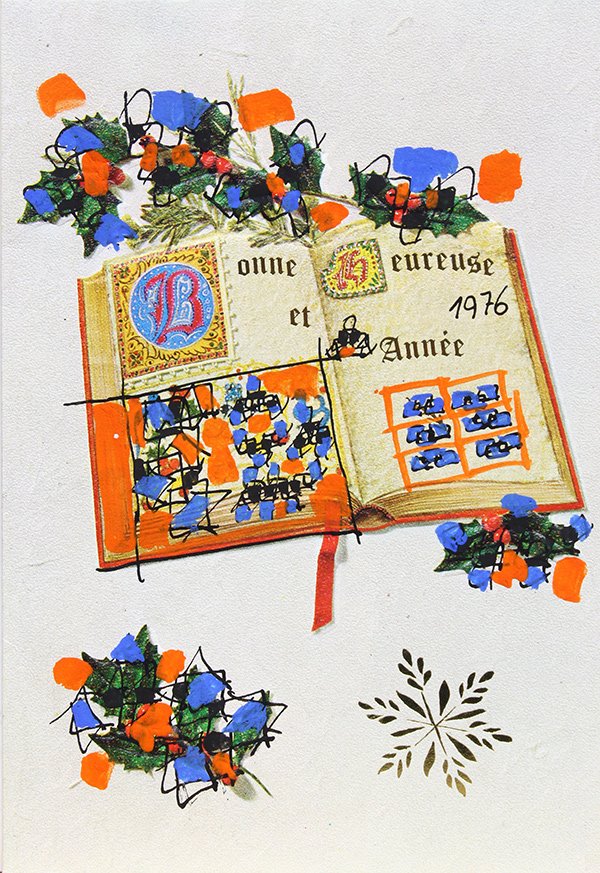 Bonne Heureuse
1976
et Année